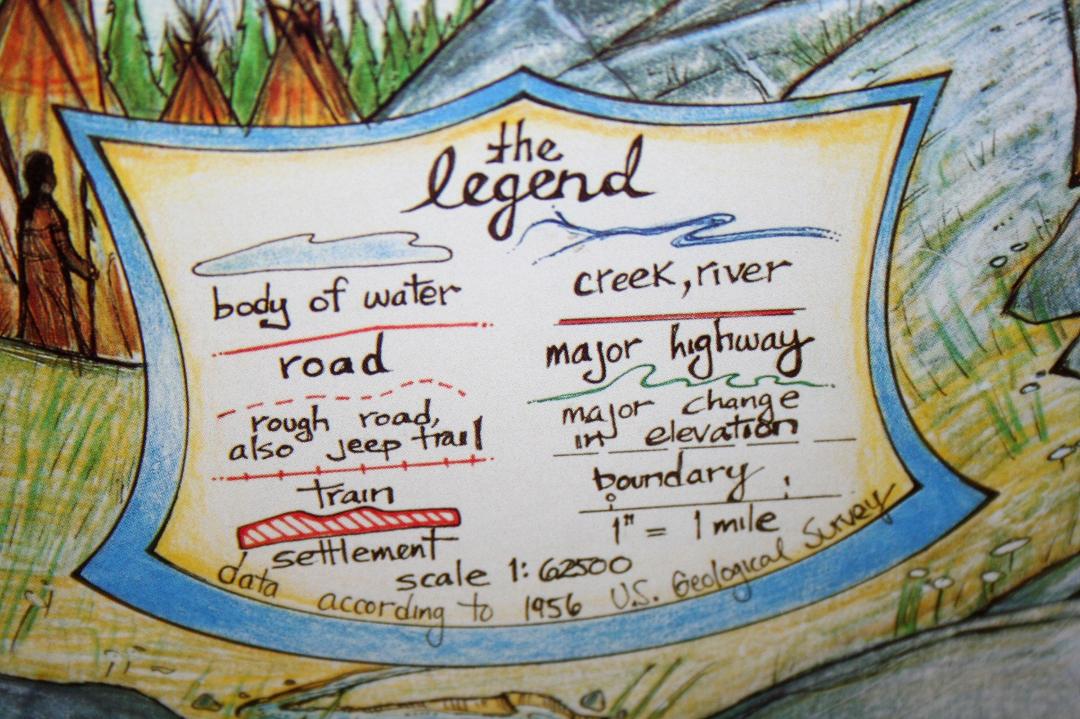 the
legend
body of water
creek, river
road
major highway
rough road,
also jeep trail
major change
in elevation
train
boundary
settlement
1" = 1 mile
scale 1:62500
data according to 1956 U.S. Geological Survey